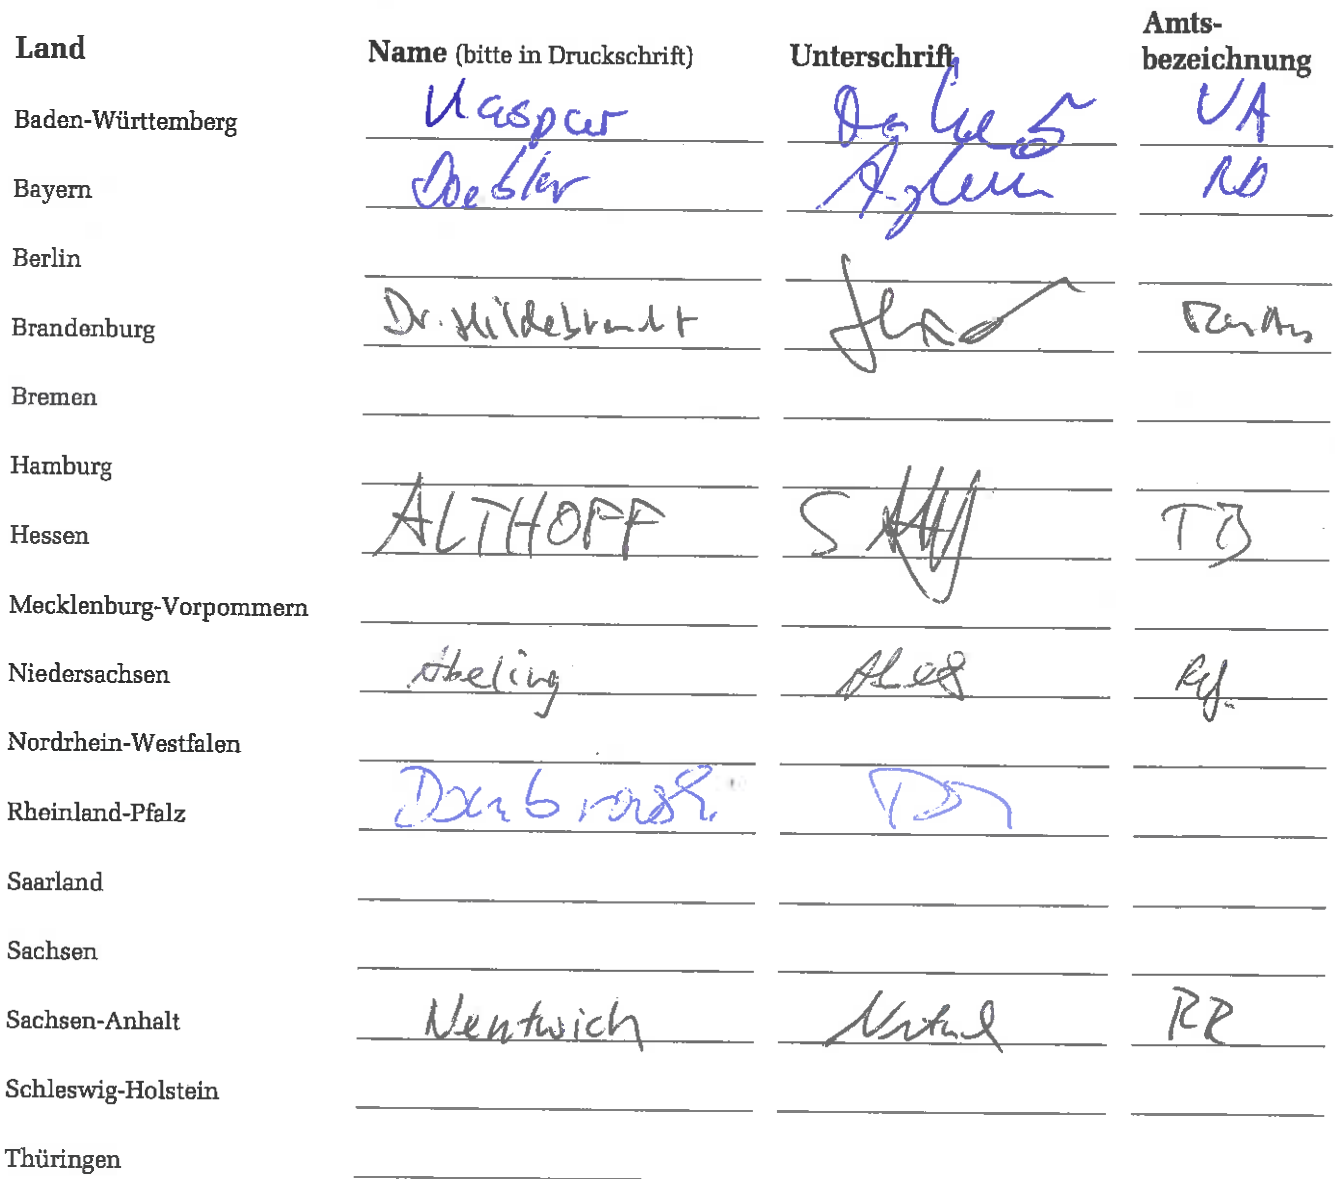 Amts-
Land Name (bitte in Druckschrift) Unterschrift bezeichnung
Baden-Württemberg Kaspar VA
Bayern Doebler RD
Berlin
Brandenburg Dr. Hildebrandt
Bremen
Hamburg
Hessen ALTHOFF TB
Mecklenburg-Vorpommern
Niedersachsen Abeling
Nordrhein-Westfalen
Rheinland-Pfalz
Saarland
Sachsen
Sachsen-Anhalt Nentwich RR
Schleswig-Holstein
Thüringen